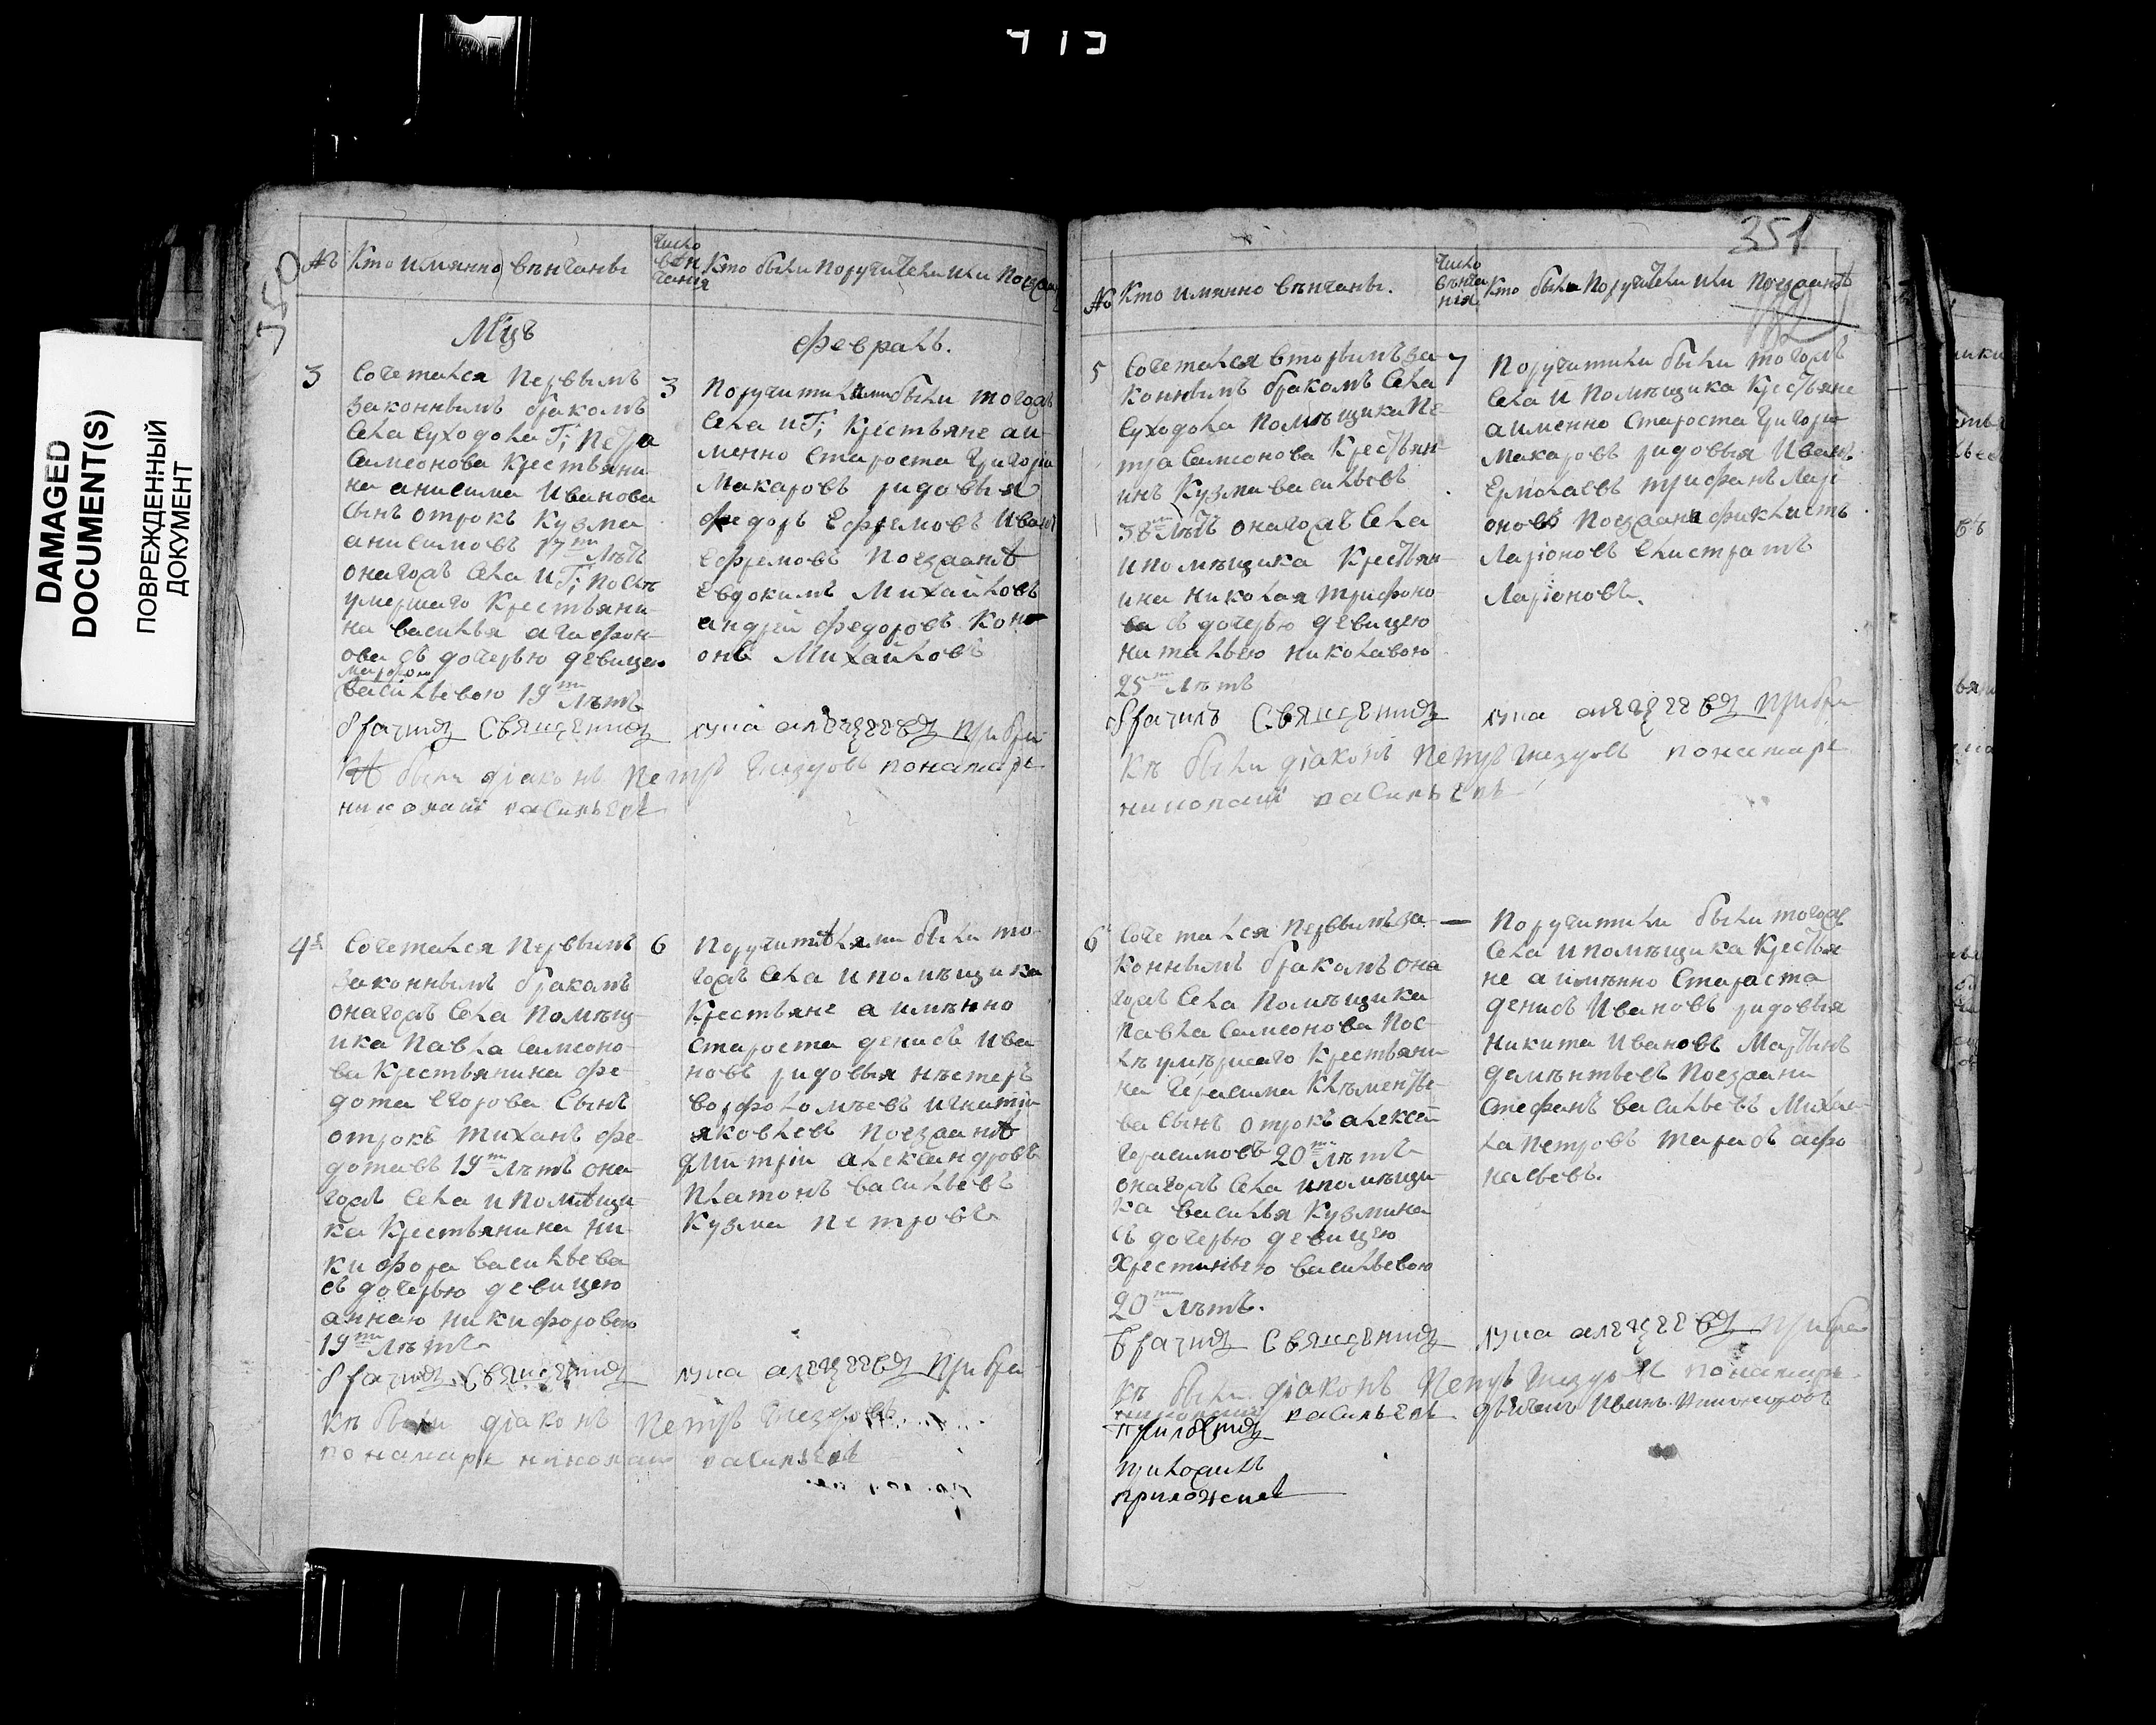 DAMAGED
DOCUMENT(S)
ПОВРЕЖДЕННЫЙ
ДОКУМЕНТ
350
№ Кто имянно вѣнчаны
Число вѣнчания
Кто были поручители или поезжан
Мцъ Февраль.
3
Сочетался первымъ
законнымъ бракомъ
села Суходола Г; Петра
Самсонова крестьяни-
на анисима Иванова
сынъ отрокъ Кузма
анисимовъ 17ти лѣтъ
онагожъ села и Г; послѣ
умершаго крестьяни-
на василья агафон-
ова съ дочерью девицею
васильевою 19ти лѣтъ
3
Поручительми были тогожъ
села и Г; крестьяне аи-
менно староста Григорiи
Макаровъ ридовыя
федоръ Ефремовъ Иванъ
Ефремовъ поезжанѣ
Евдокимъ Михайловъ
андрей федоровъ Кон-
онъ Михайловъ
Брачилъ Священникъ лука алеѯеевъ при бра-
кѣ были дiаконъ Петръ Гнездовъ понамарь
николаи васильевъ
4й
Сочетался первымъ
законнымъ бракомъ
онагожъ села помѣщ-
ика Павла Самсоно-
ва крестьянина фе-
дота Егорова сынъ
отрокъ тиханъ фе-
дотавъ 19ти лѣтъ она
гожъ села и помѣщи-
ка крестьянина ни-
кифора васильева
съ дочерью девицею
анною никифоровою
19ти лѣтъ
6
Поручитѣлями были то-
гожъ села и помѣщика
крестьяне а имѣнно
староста денисъ Ива-
новъ ридовыя нѣстеръ
ворфоломѣевъ игнатiи
яковлевъ поезжанѣ
дмитрiи александровъ
платонъ васильевъ
Кузма петровъ
Брачилъ Священникъ лука алеѯеевъ при бра-
кѣ были дiаконъ Петръ Гнездовъ
понамарь николаи васильевъ
351
№ Кто имянно вѣнчаны.
Число вѣнчания
Кто были поручители или поезжанѣ
5
Сочетался вторымъ за-
коннымъ бракомъ села
Суходола помѣщика Пе-
тра Самсонова крестьян-
инъ Кузма васильевъ
38ми лѣтъ онагожъ села
и помѣщика крестьян-
ина николая трифоно-
ва съ дочерью девицею
натальею николавою
25ти лѣтъ
7
Поручители были тогожъ
села и помѣщика крестьяне
а именно староста Григори
Макаровъ ридовыя Иванъ
Ермолаевъ трифанъ Ларi
оновъ поезжанѣ фиклистъ
Ларiоновъ Елистратъ
Ларiоновъ.
Брачилъ Священникъ лука алеѯеевъ при бра-
кѣ были дiаконъ Петръ Гнездовъ понамарь
николаи васильевъ
6
Сочетался первымъ за-
коннымъ бракомъ она
гожъ села помѣщика
Павла Самсонова пос-
лѣ умѣршаго крестьяни-
на Герасима Клѣментье-
ва сынъ отрокъ алексѣй
Герасимовъ 20ти лѣтъ
онагожъ села и помѣщи-
ка василья Кузмина
съ дочерью девицею
Хрестиньею васильевою
20ти лѣтъ.
—
Поручители были тогожъ
села и помѣщика крестья-
не а имѣнно Стараста
денисъ Ивановъ ридовыя
Никита Ивановъ Мартынъ
демѣнтьевъ поезжани
Стефанъ васильевъ Михай-
ла петровъ тарасъ афо
насьевъ.
Брачилъ Священникъ лука алеѯеевъ при бра
кѣ были дiаконъ Петръ Гнездовъ понамарь
николаи васильевъ дьячекъ Иванъ
приходилъ
приложилъ